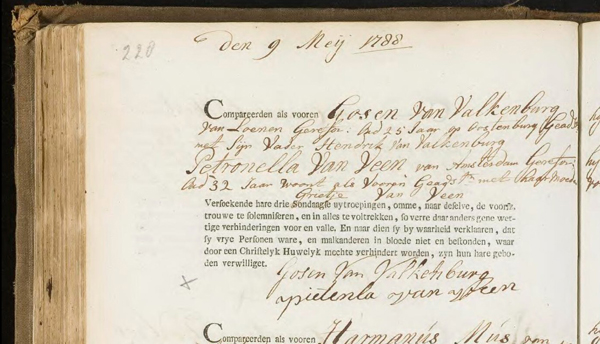 220
Den 9 Meij 1788
Compareerden als vooren Gosen Van Valkenburg
Van Loenen Gerefor: Oud 25 Jaar in Oostenburg Geads:
met Sijn Vader Hendrik Van Valkenburg
Petronella Van Veen van Amsterdam Gerefor:
Oud 32 Jaar woont als Vooren Geads: met
Grietje Van Veen
Versoekende hare drie Sondaagse uytroepingen, omme, naar deselve, de voorsz.
trouwe te solemniseren, en in alles te voltrekken, so verre daar anders gene wet-
tige verhinderingen voor en valle. En naar dien sy by waarheid verklaaren, dat
sy vrye Personen ware, en malkanderen in bloede niet en bestonden, waar
door een Christelyk Huwelyk mochte verhindert worden, zyn hun hare gebo-
den verwilliget.
Gosen Van Valkenburg
van veen
Compareerden als vooren Harmanus Mus van